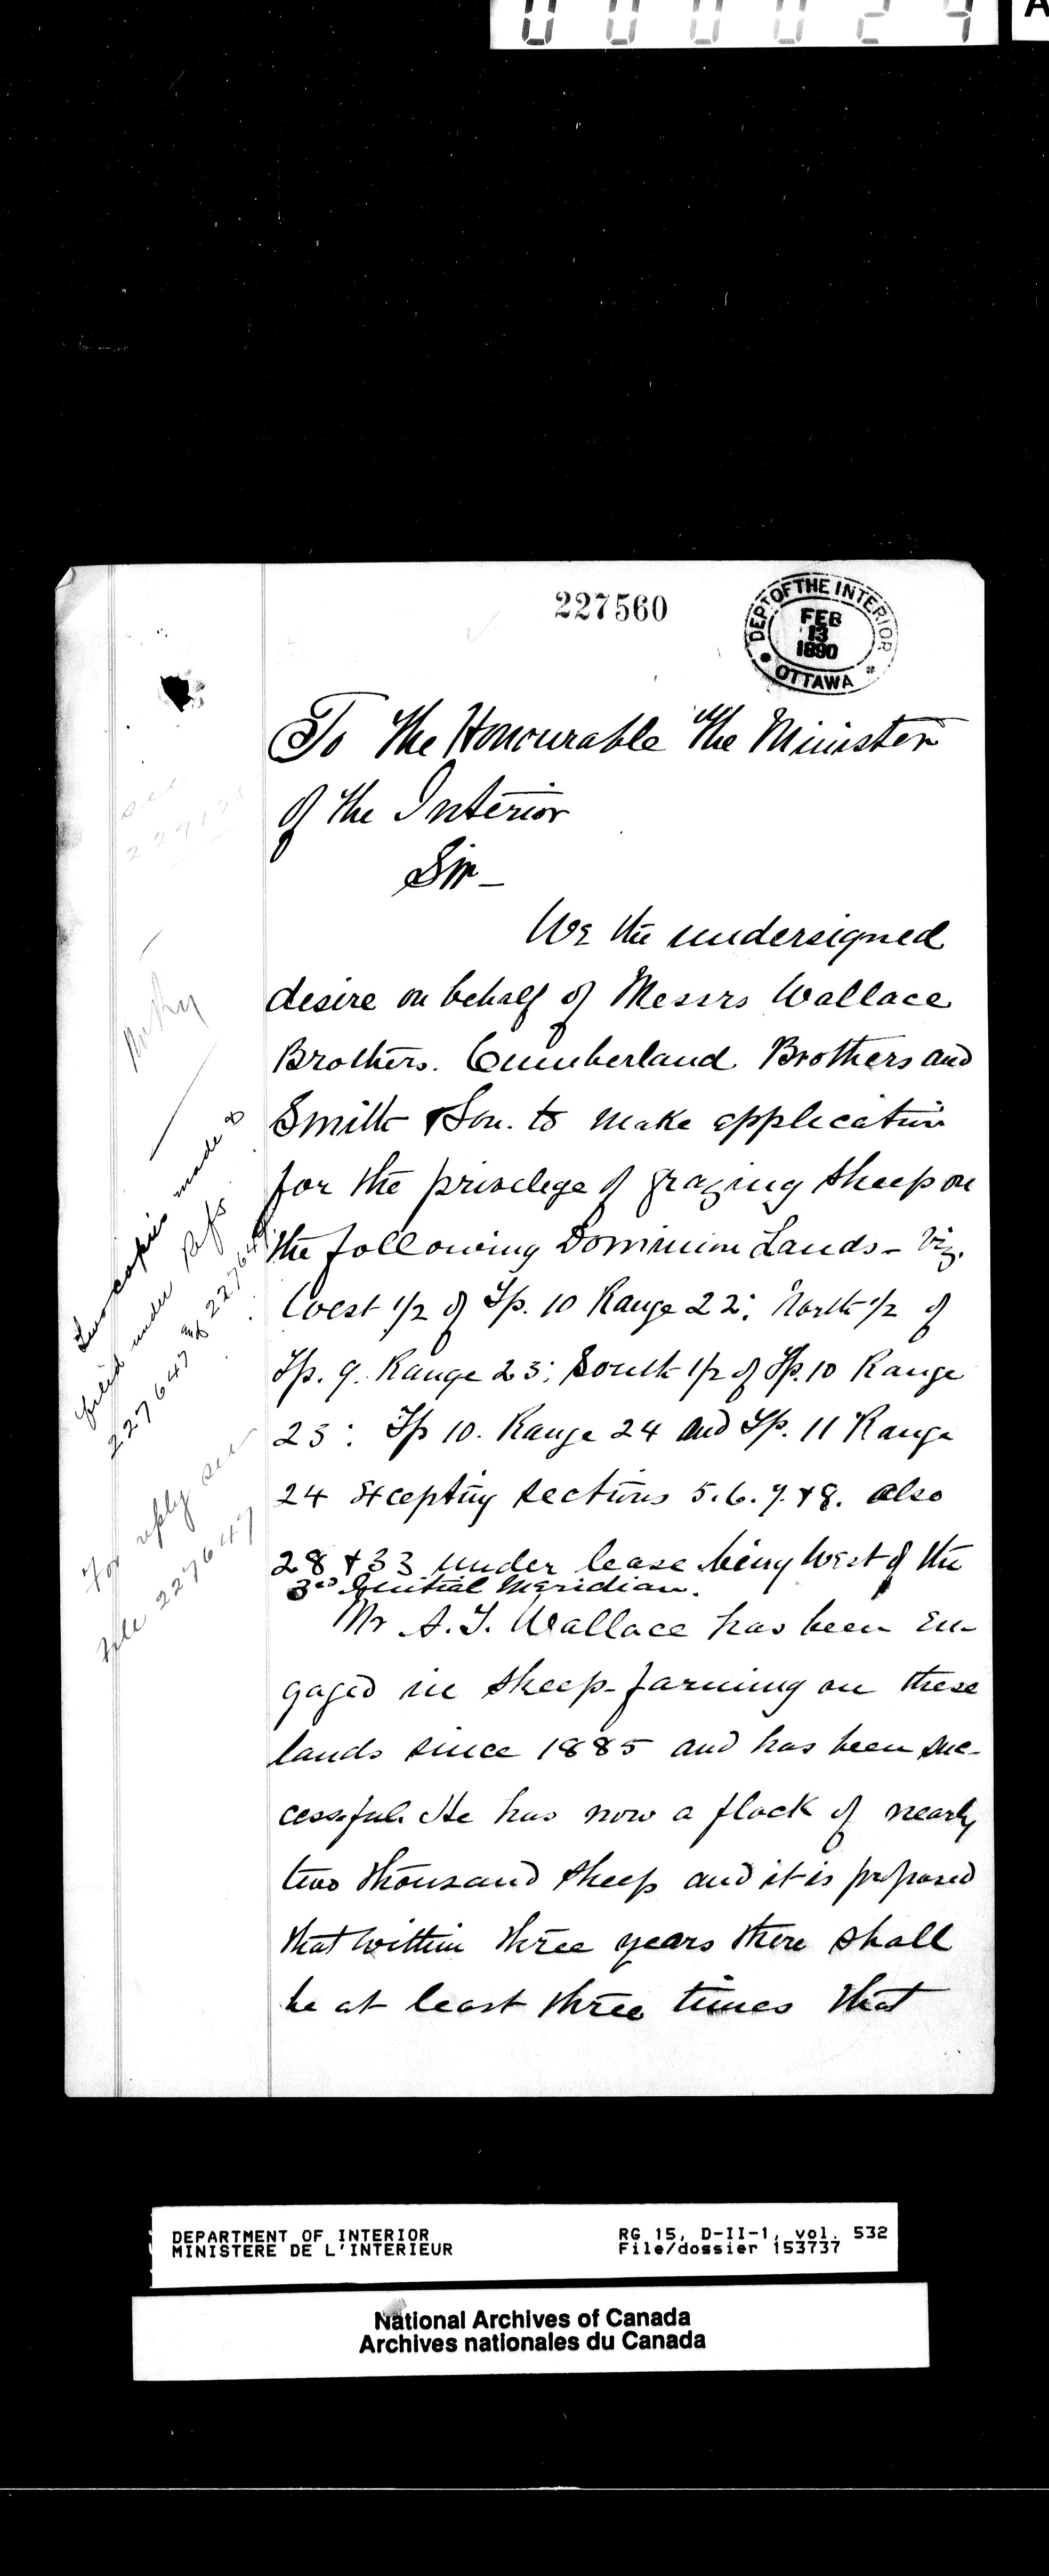 000024
A
227560
DEPT OF THE INTERIOR
FEB
13
1890
OTTAWA
To the Honourable the Minister
of the Interior
Sir_
We the undersigned
desire on behalf of Messrs Wallace
Brothers. Cumberland Brothers and
Smith & Son. to make application
for the privilege of grazing sheep on
the following Dominion Lands - Viz.
West 1/2 of Tp. 10 Range 22; North 1/2 of
Tp. 9. Range 23; South 1/2 of Tp. 10 Range
23; Tp 10. Range 24 and Tp. 11 Range
24 Excepting sections 5.6.7.&8. also
28 & 33 under lease being West of the
3rd Initial Meridian.
Mr A. T. Wallace has been en-
gaged in sheep-farming on these
lands since 1885 and has been suc-
cessful. He has now a flock of nearly
two thousand sheep and it is proposed
that within three years there shall
be at least three times that
see
Two copies made &
filed under Refs
227647 and
For reply see
file 227647
DEPARTMENT OF INTERIOR
MINISTERE DE L'INTERIEUR
RG 15, D-II-1, vol. 532
File/dossier 153737
National Archives of Canada
Archives nationales du Canada